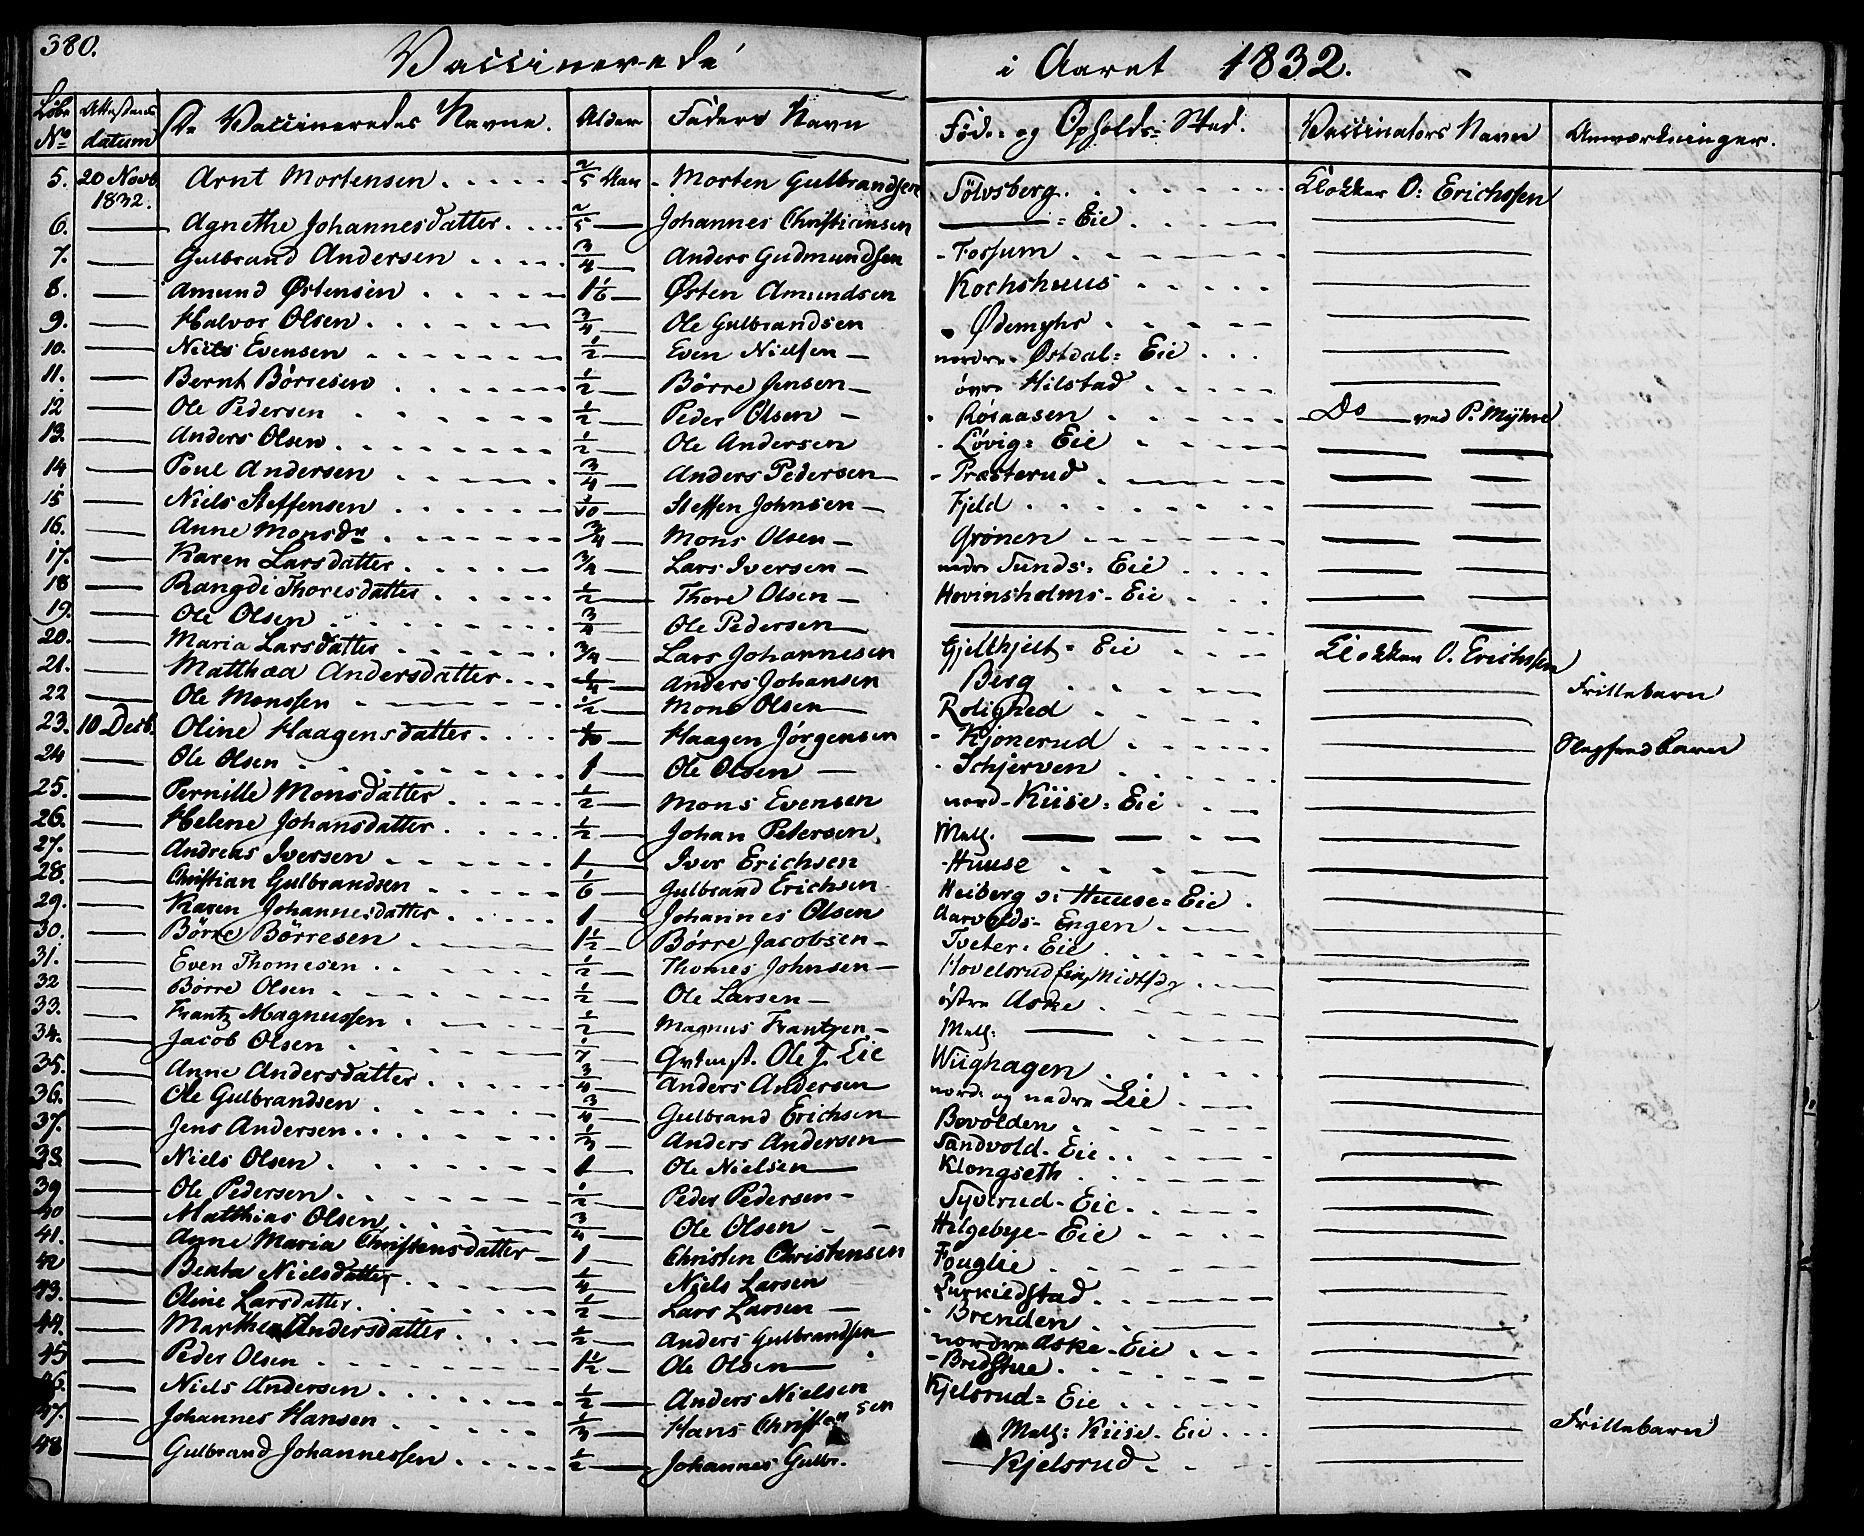 380. Vaccinerede i Aaret 1832.
Løbe No Attestens datum De Vaccineredes Navne. Alder Faders Navn Føde- og Opholds-Sted. Vaccinators Navn Anmærkninger.
5. 20 Novb. 1832. Arnt Mortensen 2/5 Aar - Morten Gulbrandsen Sölvsberg. Klokker O: Erichssen
6. — Agnethe Johannesdatter 2/5 — Johannes Christiansen — = Eie —
7. — Gulbrand Andersen 3/4 — Anders Gudmundsen - Fossum —
8. — Amund Østensen 1 1/6 — Østen Amundsen Kochshuus —
9. — Halvor Olsen 3/4 — Ole Gulbrandsen - Ødemyhr —
10. — Niels Evensen 1/2 — Even Nielsen — nordre Østdal= Eie —
11. — Bernt Börresen 1/2 — Börre Jensen — övre Hilstad —
12 — Ole Pedersen 1/2 — Peder Olsen — Rösaasen Do — ved P. Myhre
13. — Anders Olsen 1/2 — Ole Andersen - Lövig= Eie — —
14 — Poul Andersen 3/4 — Anders Pedersen — - Præsterud — —
15 — Niels Steffensen 1/10 — Steffen Johnsen — Fjeld — —
16. — Anne Monsdr 3/4 — Mons Olsen — Grönen — —
17. — Karen Larsdatter 3/4 — Lars Iversen — nedre Sunds= Eie — —
18 — Rangdi Thoresdatter 1/2 — Thore Olsen — Hovinsholms- Eie — —
19. — Ole Olsen 3/4 — Ole Pedersen — — — —
20. — Maria Larsdatter 3/4 — Lars Johannesen Gjelthjelt= Eie Klokker O. Erichssen
21. — Matthæa Andersdatter 1/4 — Anders Johansen Berg — Frillebarn
22 — Ole Monssen 1/2 — Mons Olsen — Rolighed —
23. 10 Decb. Oline Haagensdatter 1/10 — Haagen Jörgensen - Kjonerud — Slegfredbarn
24 — Ole Olsen 1 — Ole Olsen — - Schjerven —
25. — Pernille Monsdatter 1/2 — Mons Evensen nord- Kiise= Eie —
26. — Helene Johansdatter 1/2 — Johan Petersen Mell. — —
27. — Andreas Iversen 1 — Iver Erichsen - Huuse —
28. — Christian Gulbrandsen 1/6 — Gulbrand Erichsen Heiberg o: Huuse= Eie —
29. — Karen Johannesdatter 1 — Johannes Olsen Aarvolds- Engen —
30. — Börre Börresen 1 1/2 — Börre Jacobsen — Tveter= Eie —
31. — Even Thomesen 1/2 — Thomes Johnsen — Hovelsrud —
32 — Börre Olsen 1/2 — Ole Larsen — östre Aske —
33. — Frantz Magnussen 1/2 — Magnus Frantzen — Mell: — —
34. — Jacob Olsen 1/7 — Ole J. Eie Wiighagen —
35. — Anne Andersdatter 3/4 — Anders Andersen nord- og nedre Eie —
36. — Ole Gulbrandsen 3/4 — Gulbrand Erichsen — Bovolden —
37. — Jens Andersen 1/3 — Anders Andersen — Sandvold- Eie —
38. — Niels Olsen 1 — Ole Nielsen — Klongseth —
39 — Ole Pedersen 1/2 — Peder Pedersen — Syverud- Eie —
40 — Matthias Olsen 3/4 — Ole Olsen — Helgebye- Eie —
41. — Anne Maria Christensdatter 1 — Christen Christensen Fouglie —
42 — Beata Nielsdatter 1/4 — Niels Larsen —
43. — Oline Larsdatter 1/2 — Lars Larsen — - Brenden —
44. — Marthea Andersdatter 1/2 — Anders Gulbrandsen nordre Aske- Eie —
45 — Peder Olsen 1 1/2 — Ole Olsen — - Bredstue —
46. — Niels Andersen 1/2 — Anders Nielsen Kjelsrud= Eie —
47. — Johannes Hansen 1/3 — Hans Christensen Mell: Kiise- Eie — Frillebarn
48 — Gulbrand Johannessen 1/2 — Johannes Gulbr. — Kjelsrud —